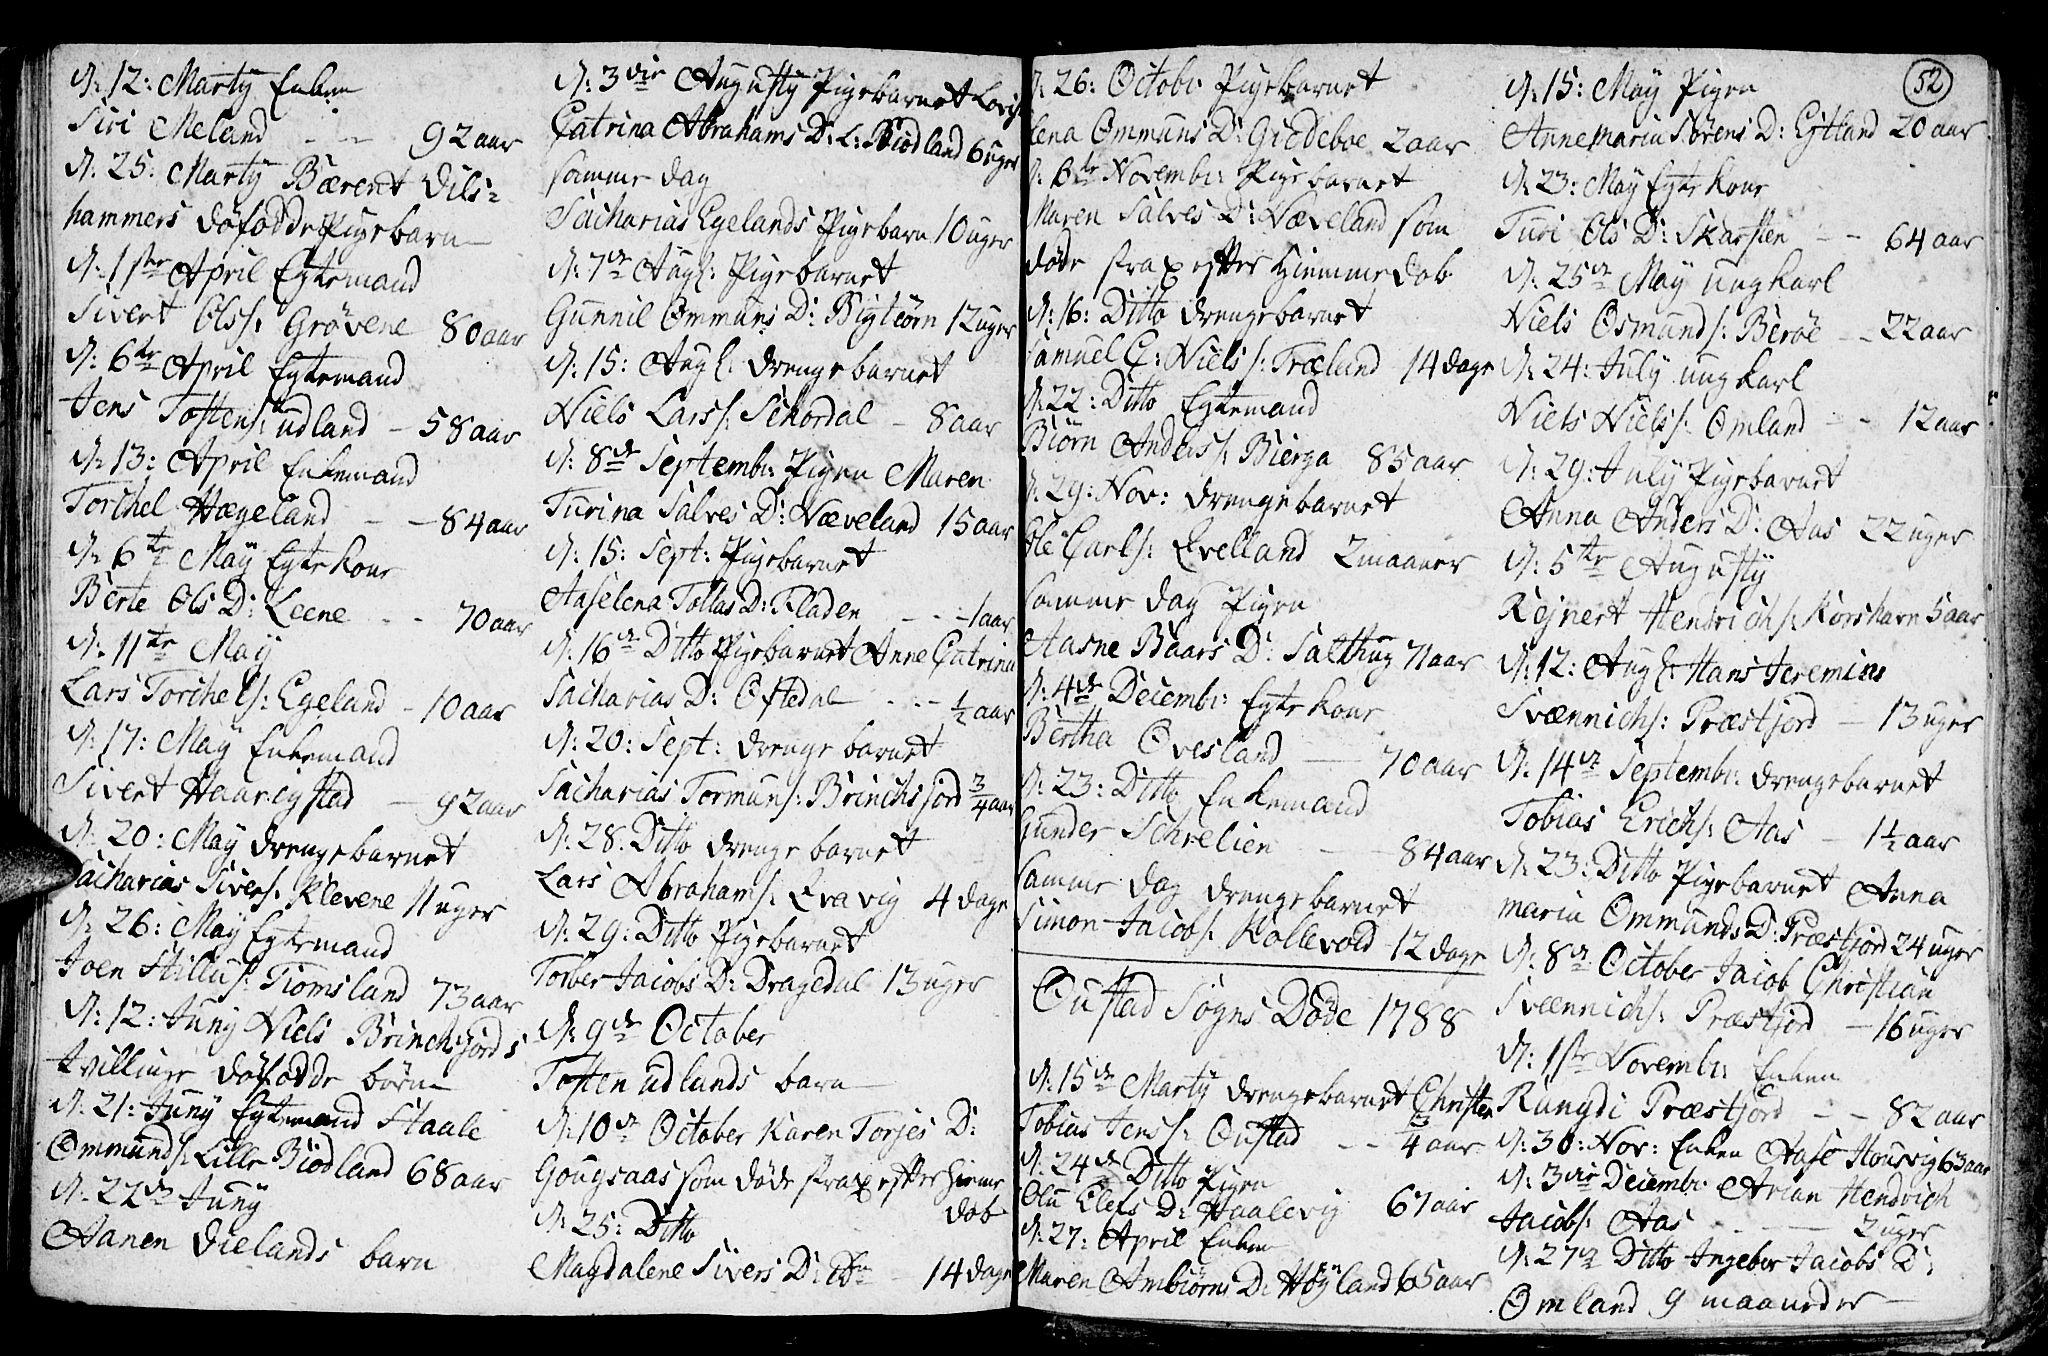 d: 12: Marty Enken
Siri Meland - - 92 aar
d: 25: Marty Bærent Dils-
hammers döfödde Pigebarn
d: 1ste April Egtemand
Sivert Ols s: Grövene 80 aar
d: 6te April Egtemand
Jens Tosten s: udland - 58 aar
d: 13: April Enkemand
Torchel Hægeland - - 84 aar
d: 6te May Egte kone
Berte Ols D: Leene - - 70 aar
d: 11te May
Lars Torchels: Egeland - 10 aar
d: 17: May Enkemand
Sivert Haarigstad - 92 aar
d: 20: May drengebarnet
Sacharias Sivers: Klevene 11 uger
d: 26: May Egtemand
Joen Stillu s: Tiomsland 73 aar
d: 12: Juny Niels Brinchsfjords
tvillinge döfödde börn
d: 21: Juny Egtemand Staale
Ommunds: Lille Biödland 68 aar
d: 22de Juny
Aanen Dielands barn
d: 3die Augusty Pigebarnet Lovise
Catrina Abrahams D: L: Biodland 6 uger
samme dag
Sacharias Egelands Pigebarn 10 uger
d: 7de Aug: Pigebarnet
Gunnil Ommuns D: Bigtiörn 12 uger
d: 15: Aug: drenge barnet
Niels Lars s: Sehordal - 8 aar
d: 8de Septembr: Pigen Maren
Turina Salves D: Næveland 15 aar
d: 15: Sept: Pigebarnet
Aaselena Tollas D: Fladen - - 1 aar
d: 16de Ditto Pigebarnet Anne Catrina
Sacharias D: Oftedal - - - 1/2 aar
d: 20: Sept: drenge barnet
Sacharias Tormuns: Brinchsfjord 3/4 aar
d: 28: Ditto drenge barnet
Lars Abrahams: Eravig 4 dage
d: 29: Ditto Pigebarnet
Torber Jacobs D: Dragedal 13 uger
d: 9de October
Tosten udlands barn
d: 10de October Karen Torjes D:
Gougsaas som döde strax efter hieme
dob
d: 25: Ditto
Magdalene Sivers D: - 14 dage
d: 26: Octobr: Pigebarnet
lena Ommuns D: Giedeboe 2 aar
d: 6te Novembr: Pigebarnet
Maren Salves D: Næveland som
döde strax efter Hiemmedob
d: 16: Ditto drengebarnet
Samuel C: Niels s: Træland 14 dage
d: 22: Ditto Egtemand
Biörn Anders s: Bierga 85 aar
d: 29: Nov: drengebarnet
Ole Carls: Evelland 2 maaner
samme dag Pigen
Aasne Baars D: Salthug 71 aar
d: 4de Decembr: Egte kone
Bertha Ovesland - 70 aar
d: 23: Ditto Enkemand
Gunder Schrelien - 84 aar
Samme dag drengebarnet
Simon Jacobs: Kollevold 12 dage
Oustad Sogns Döde 1788
d: 15de Marty drengebarnet Christen
Tobias Jens s: Oustad - - 4 aar
d: 24de Ditto Pigen
Olu Elefs D: Haalevig 67 aar
d: 27: April Enken
Maren Ambiörns D: Höyland 65 aar
52
d: 15: May Pigen
Anne maria Sörens D: Eytland 20 aar
d: 23: May Egte kone
Turi Ols D: Skarsten - - 64 aar
d: 25de May ung karl
Niels Osmunds: Beröe - - 22 aar
d: 24: July ung karl
Niels Niels s: Omland - - 12 aar
d: 29: July Pigebarnet
Anna Anders D: Aas 22 uger
d: 5te Augusty
Rejnert Hendrichs: Korshavn 5 aar
d: 12: Aug: Hans Jeremias
Svennichs: Præstfjord - 13 uger
d: 14de Septembr: drengebarnet
Tobias Erichs: Aas - 1 1/2 aar
d: 23: Ditto Pigebarnet Anna
maria Ommunds D: Præstfjord 24 uger
d: 8de October Jacob Christian
Svennichs: Præstfjord - 16 uger
d: 1ste Novembr: Enken
Rangdi Præstfjord - - 82 aar
d: 30: Nov: Enken Aase Housvig 63 aar
d: 3die Decembr: Arian Hendrich
Jacobs: Aas - - 2 uger
d: 27de Ditto Ingebor Jacobs D:
Omland 9 maaneder